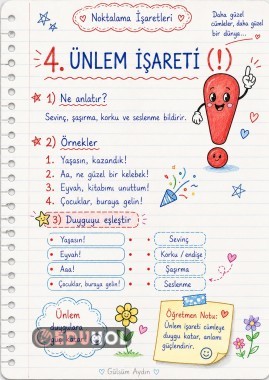 Noktalama İşaretleri
Daha güzel
cümleler, daha güzel
bir dünya...
4. ÜNLEM İŞARETİ (!)
1) Ne anlatır?
Sevinç, şaşırma, korku ve seslenme bildirir.
2) Örnekler
1. Yaşasın, kazandık!
2. Aa, ne güzel bir kelebek!
3. Eyvah, kitabımı unuttum!
4. Çocuklar, buraya gelin!
3) Duyguyu eşleştir
Yaşasın! Sevinç
Eyvah! Korku / endişe
Aaa! Şaşırma
Çocuklar, buraya gelin! Seslenme
Ünlem
duygulara
EDUHOL
Öğretmen Notu:
Ünlem işareti cümleye
duygu katar, anlamı
güçlendirir.
Gülsüm Aydın